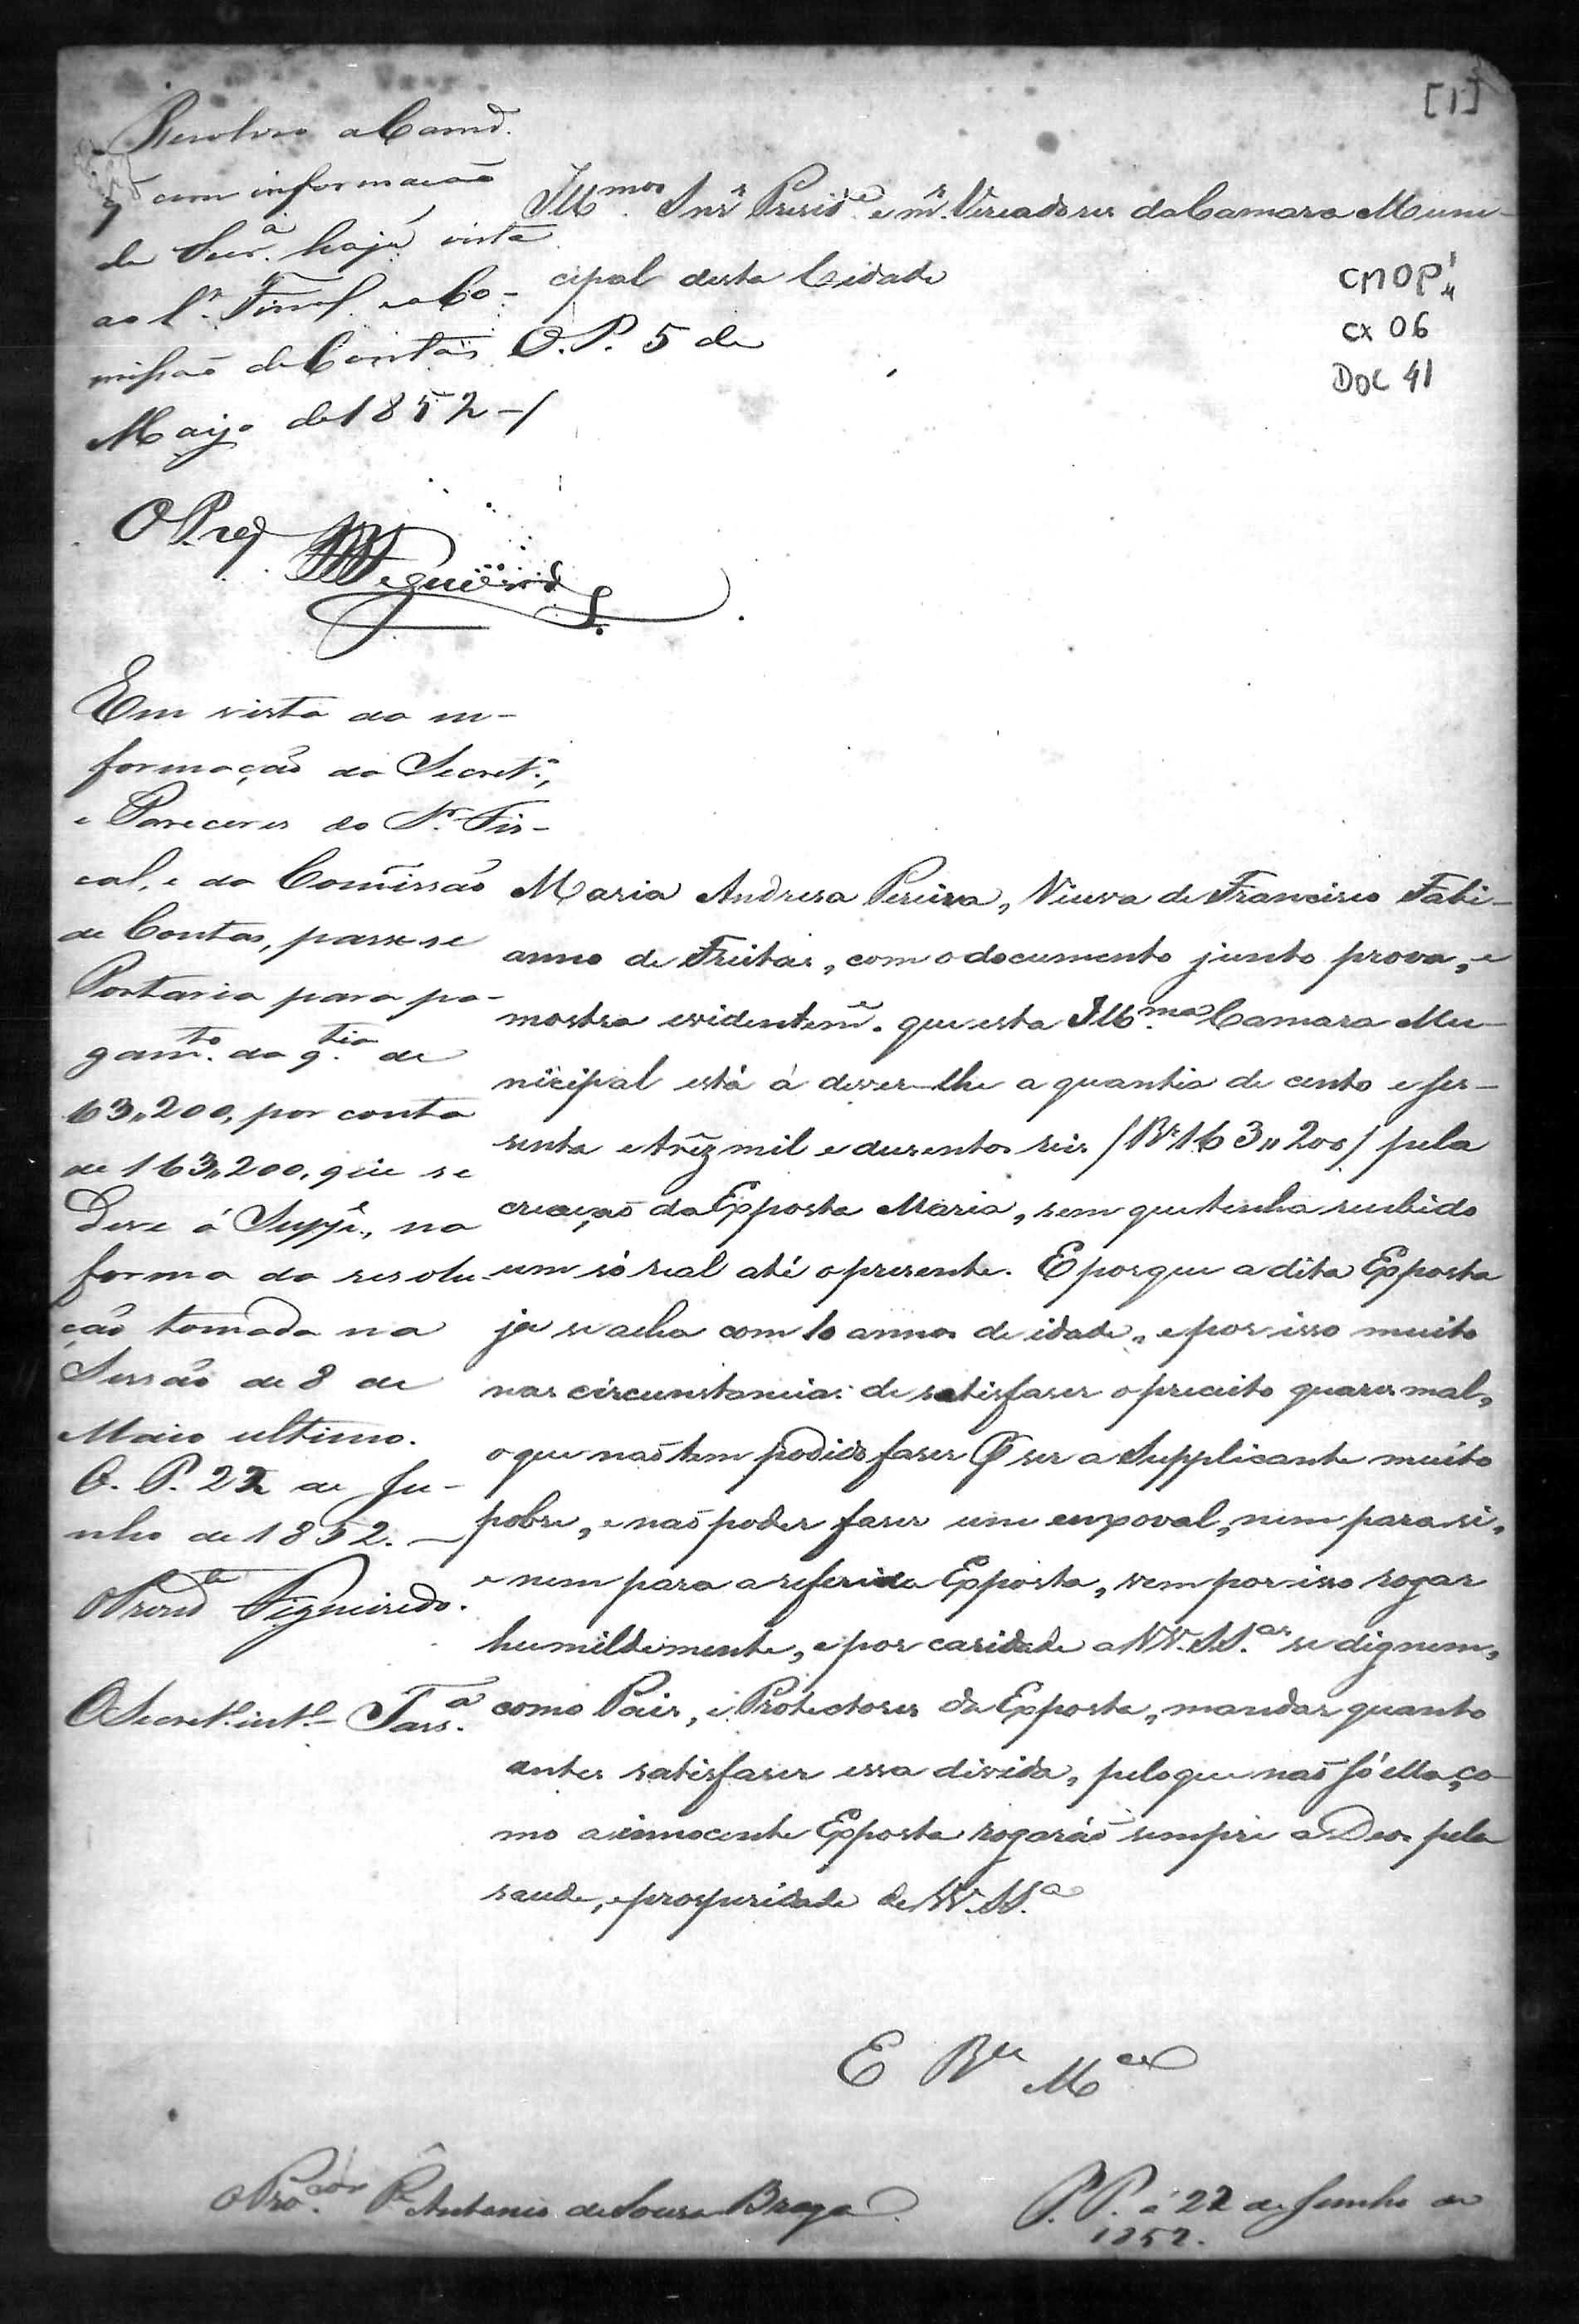 [1]
Resolveo a Camr.ª
q̃ com informação
da Secr.ª haja vista
ao S.r Fiscal, e a Co-
missaõ de Contas O. P. 5 de
Mayo de 1852 -/
O Preş. Figueired.
Ill.mos Snr.s Presid.e e m.s Vereadores da Camara Muni-
cipal desta Cidade
CMOP
cx 06
Doc 41
Em vista da in-
formação da Secret.ª,
e Pareceres do S.r Fis-
cal, e da Com̃issão
de Contas, passe-se
Portaria para pa-
gam.to da q.tia de
63,,200, por conta
de 163,,200, que se
Deve á Supp.e, na
forma da resolu-
ção tomada na
Sessão de 8 de
Maio ultimo.
O. P. 22 de Ju-
nho de 1852. —
O Presid.e Figueiredo.
O Secret.º int.º
Maria Andresa Pereira, Viuva de Francisco Fabi-
anno de Freitas, com o documento junto prova, e
mostra evidentem.e que esta Ill.ma Camara Mu-
nicipal está á dever-lhe a quantia de cento e ses-
senta e trêz mil e dusentos reis /Rs 163,,200/ pela
creaçaõ da Exposta Maria, sem que tenha recebido
um só real até o presente. E porque a dita Exposta
ja se acha com 10 annos de idade, e por isso muito
nas circunstancias de satisfaser o preceito quaresmal,
o que naõ tem podido faser P ser a Supplicante muito
pobre, e naõ poder faser um enxoval, nem para si,
e nem para a referida Exposta, vem por isso rogar
humildemente, e por caridade a VV. SS.as se dignem,
como Pais, e Protectores da Exposta, mandar quanto
antes satisfaser essa divida, pelo que naõ só ella, co-
mo a innocente Exposta rogaráõ sempre a Deos pela
saude, e prosperidade de VV. SS.ª
E R.e M.ce
O Pro.dor P.e Antonio de Sousa Braga
P. P. a 22 de Junho de
1852.